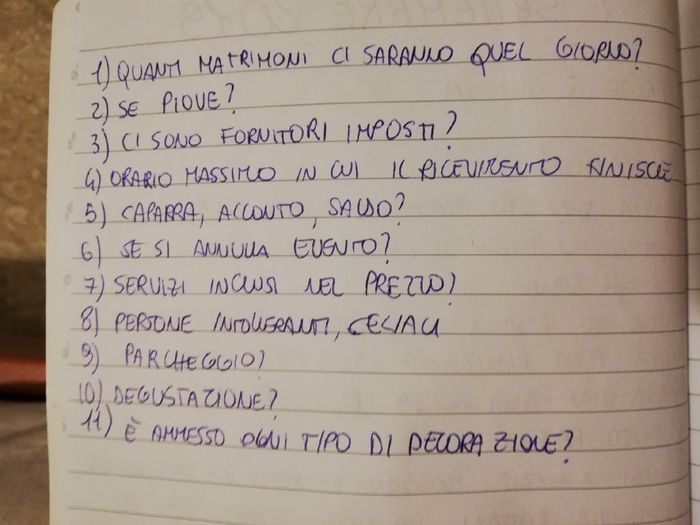 1) QUANTI MATRIMONI CI SARANNO QUEL GIORNO?
2) SE PIOVE?
3) CI SONO FORNITORI IMPOSTI?
4) ORARIO MASSIMO IN CUI IL RICEVIMENTO FINISCE
5) CAPARRA, ACCONTO, SALDO?
6) SE SI ANNULLA EVENTO?
7) SERVIZI INCLUSI NEL PREZZO?
8) PERSONE INTOLLERANTI, CELIACI
9) PARCHEGGIO?
10) DEGUSTAZIONE?
11) È AMMESSO OGNI TIPO DI DECORAZIONE?